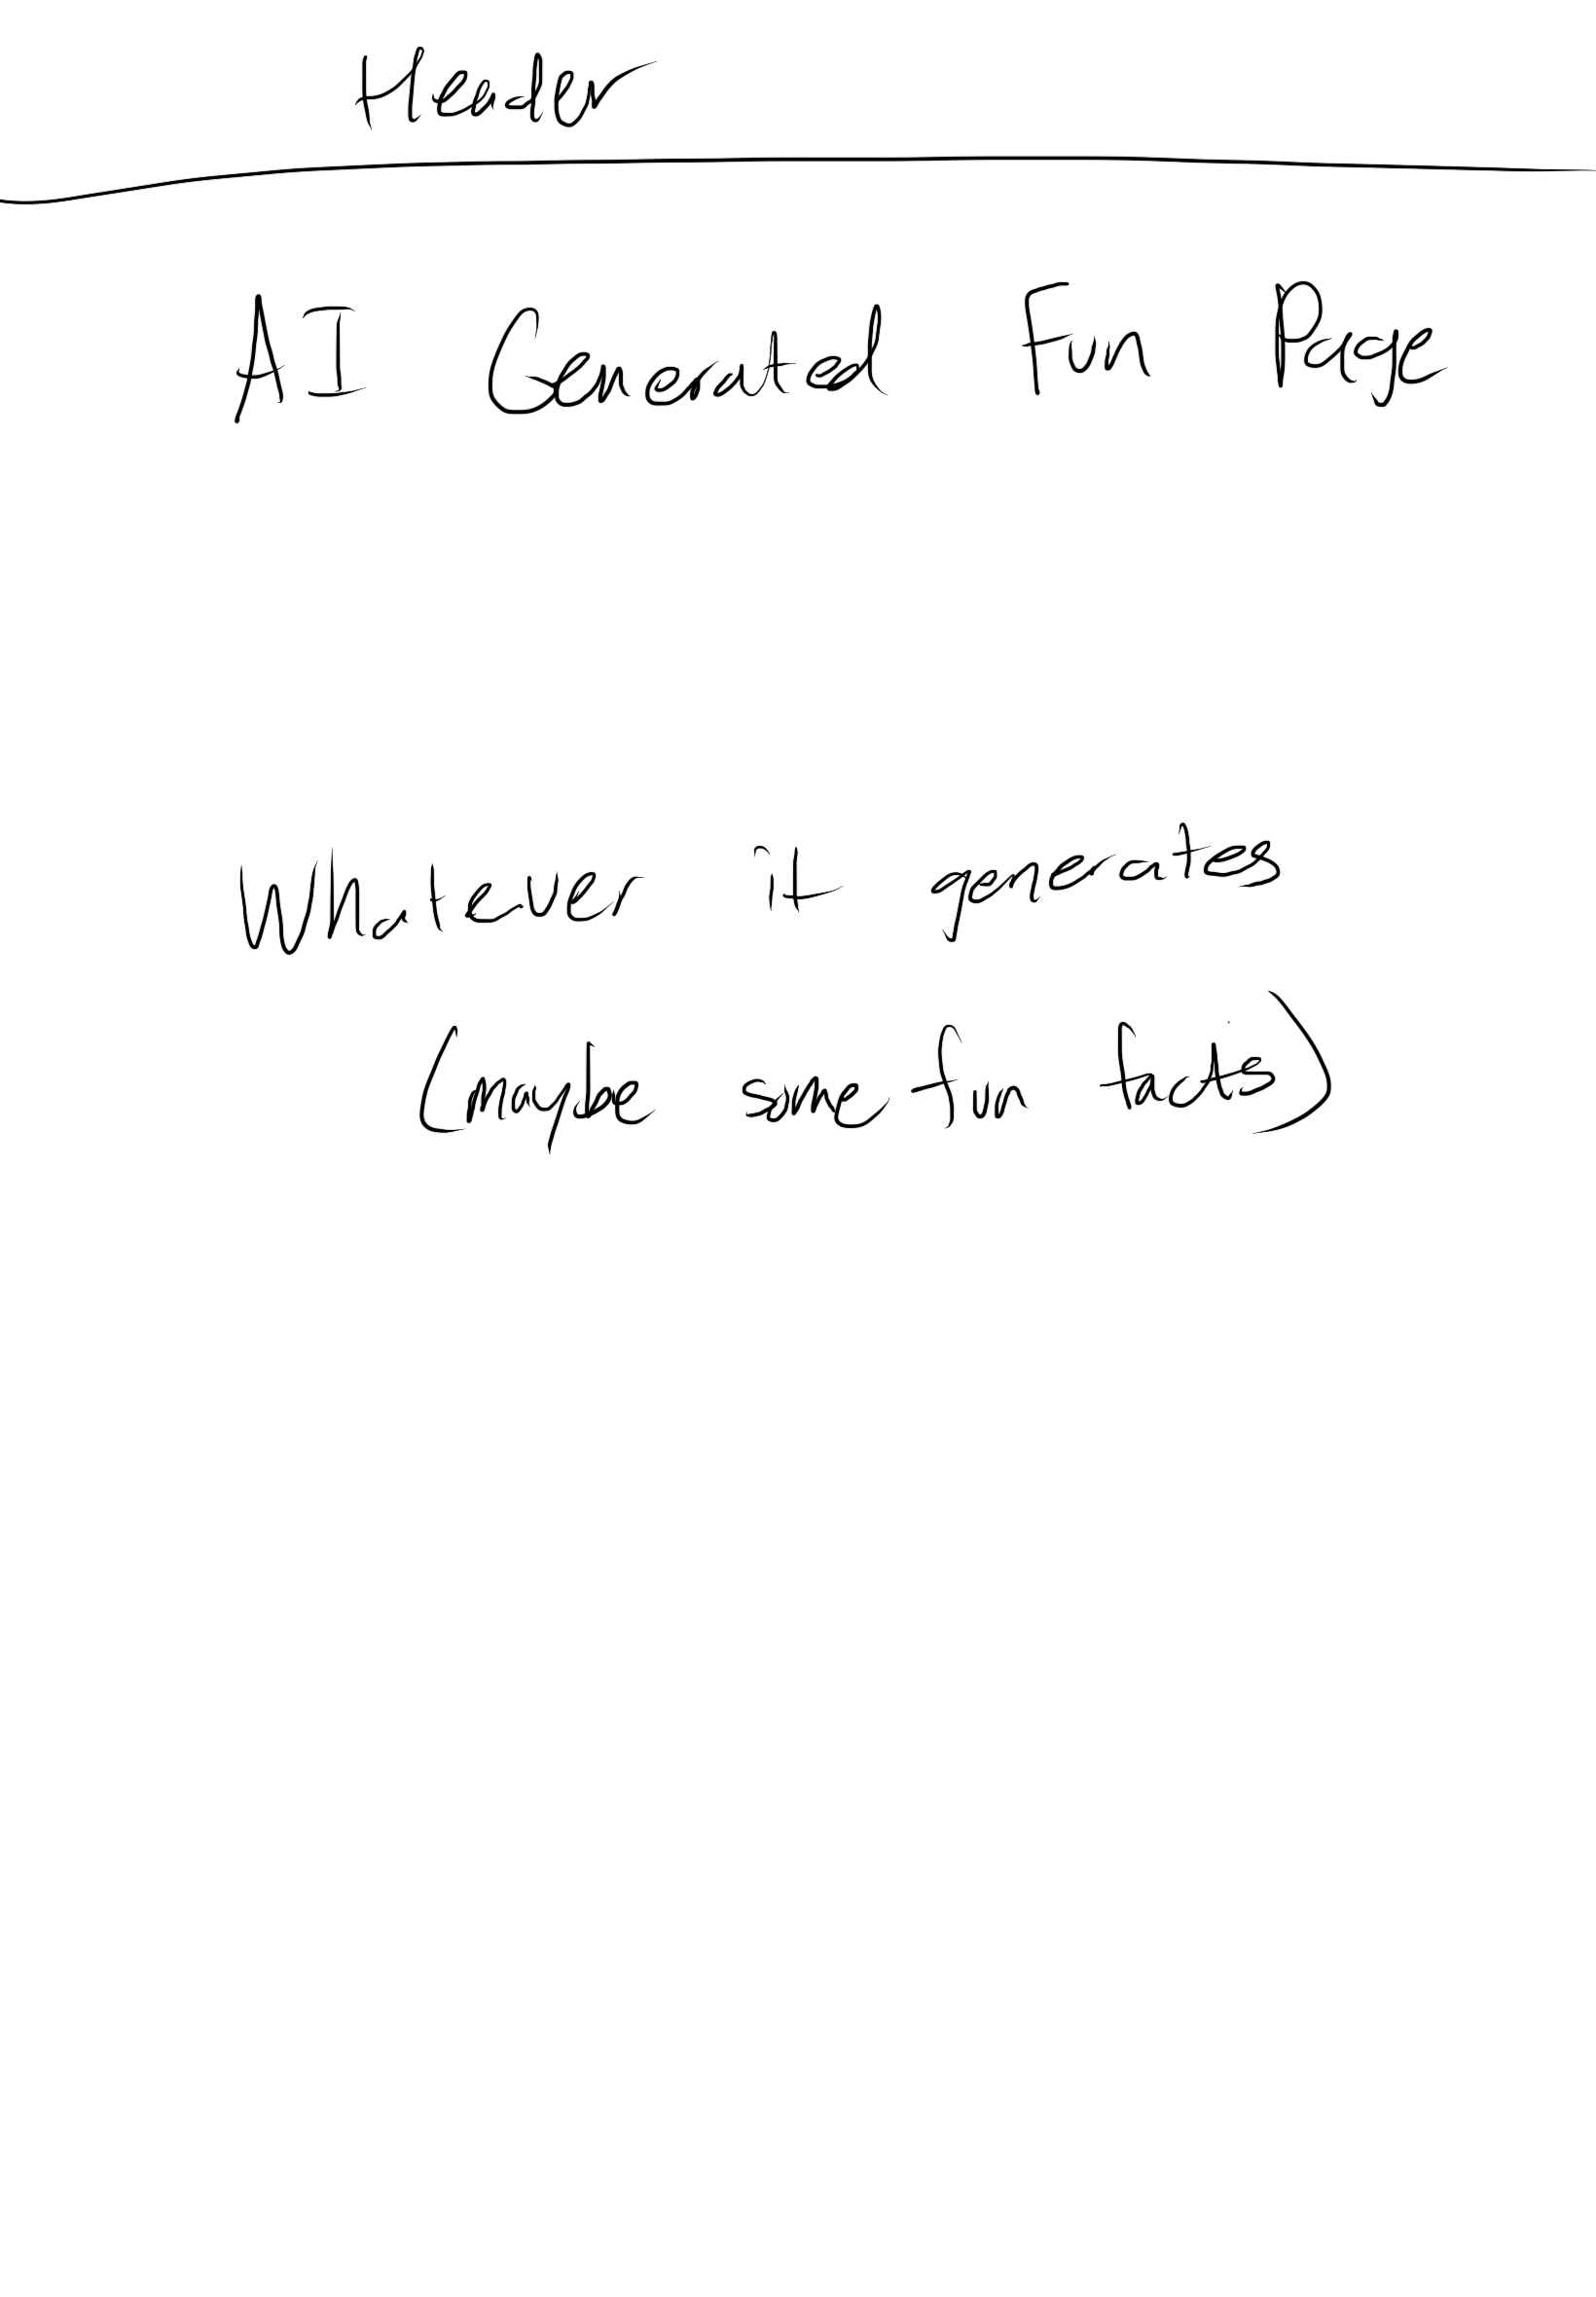 Header
AI Generated Fun Page
Whatever it generates
(maybe some fun facts)